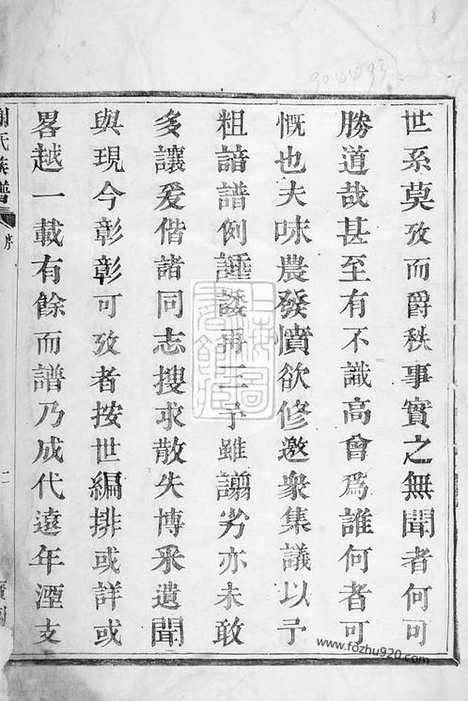 世系莫攷而爵秩事實之無聞者何可
勝道哉甚至有不識高曾爲誰何者可
慨也夫味農發憤欲修邀衆集議以予
粗諳譜例諈諉再三予雖譾劣亦未敢
多讓爰偕諸同志搜求散失博釆遺聞
與現今彰彰可攷者按世編排或詳或
畧越一載有餘而譜乃成代遠年湮支
氏族譜
序
二
www.fozhu920.com